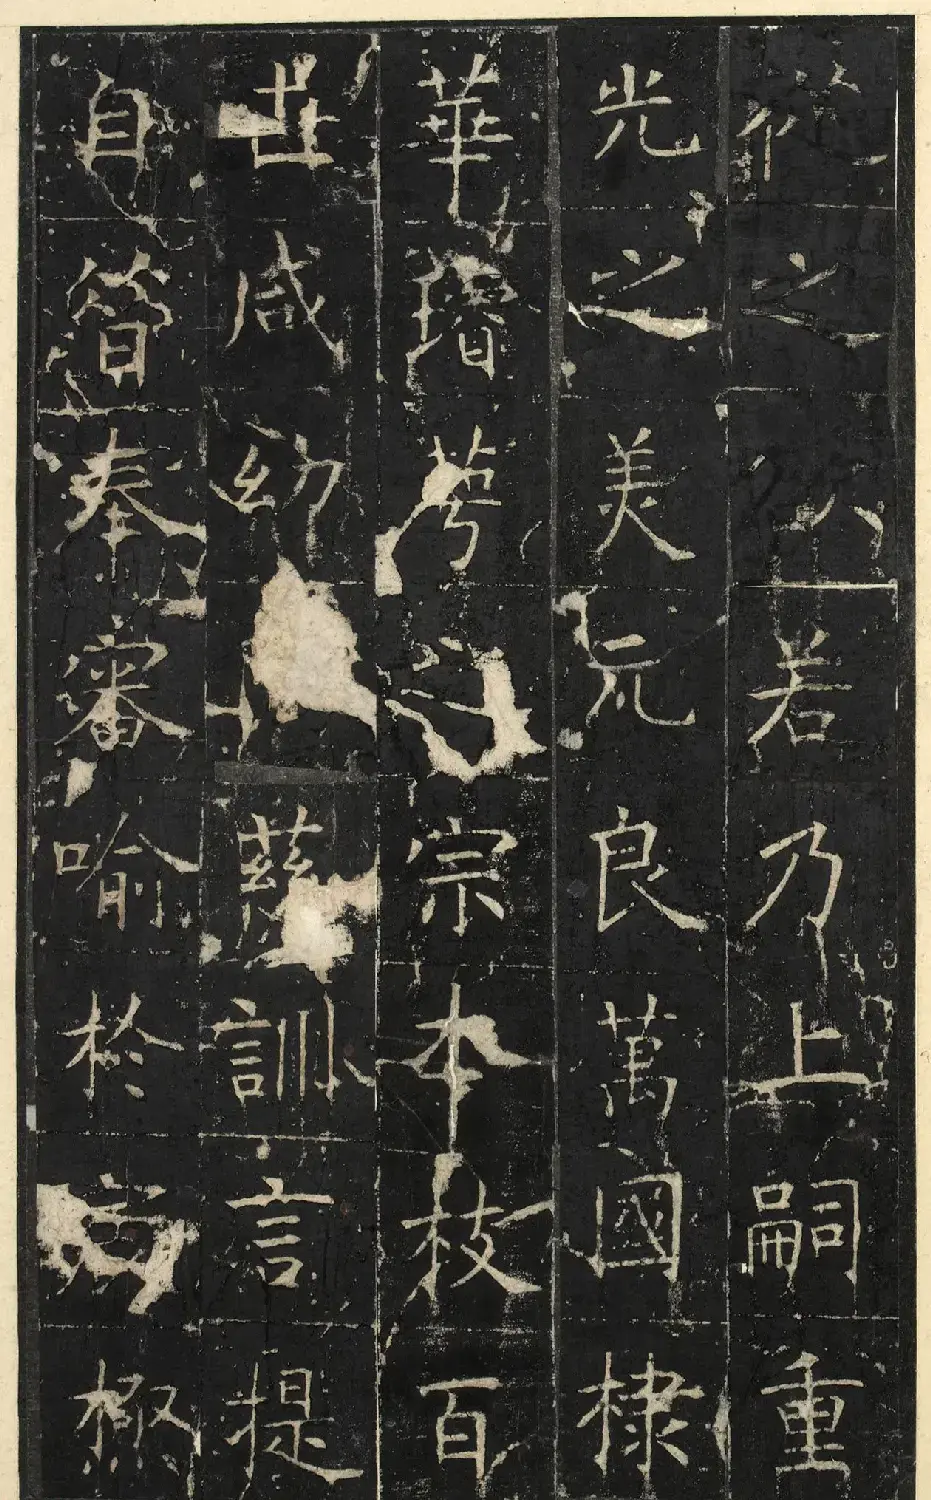 從之若乃上嗣重
光之美元良萬國棣
華萼之宗本枝百
世咸幼慈訓言提
自奉審喻於極